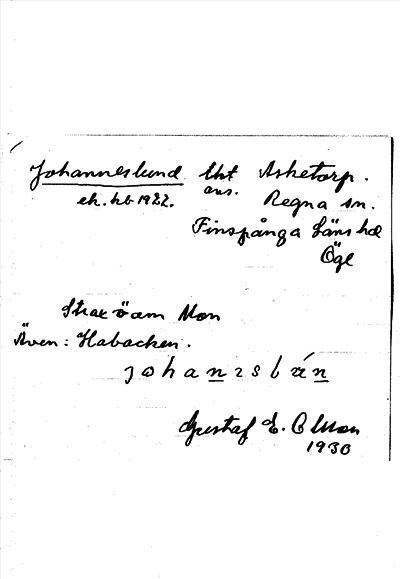 Johanneslund lht Asketorp.
ek. kb 1922. ans. Regna sn.
Finspånga läns hd
Ögl
Strax ö om Mon
Även: Habacken.
Gustaf E. Olsson
1930